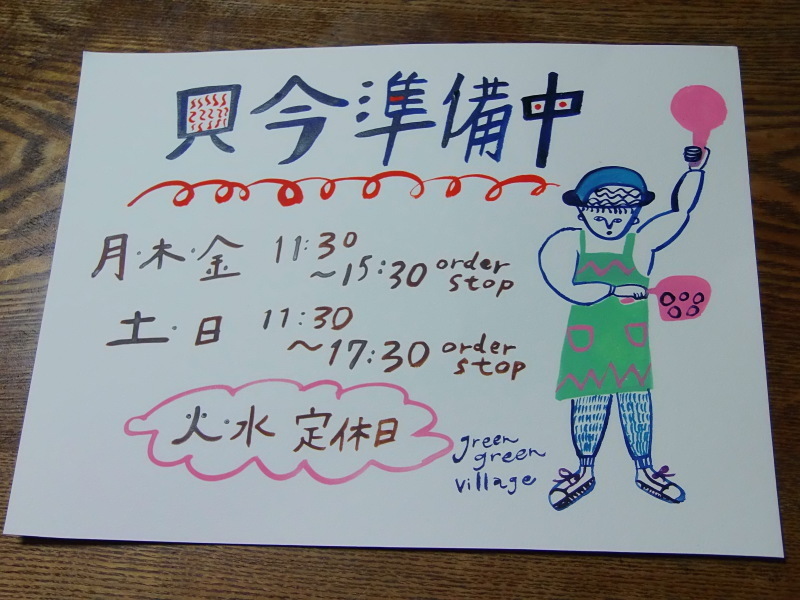 只今準備中
月・木・金 11:30
〜15:30 order stop
土・日 11:30
〜17:30 order stop
火・水 定休日
green
green
village